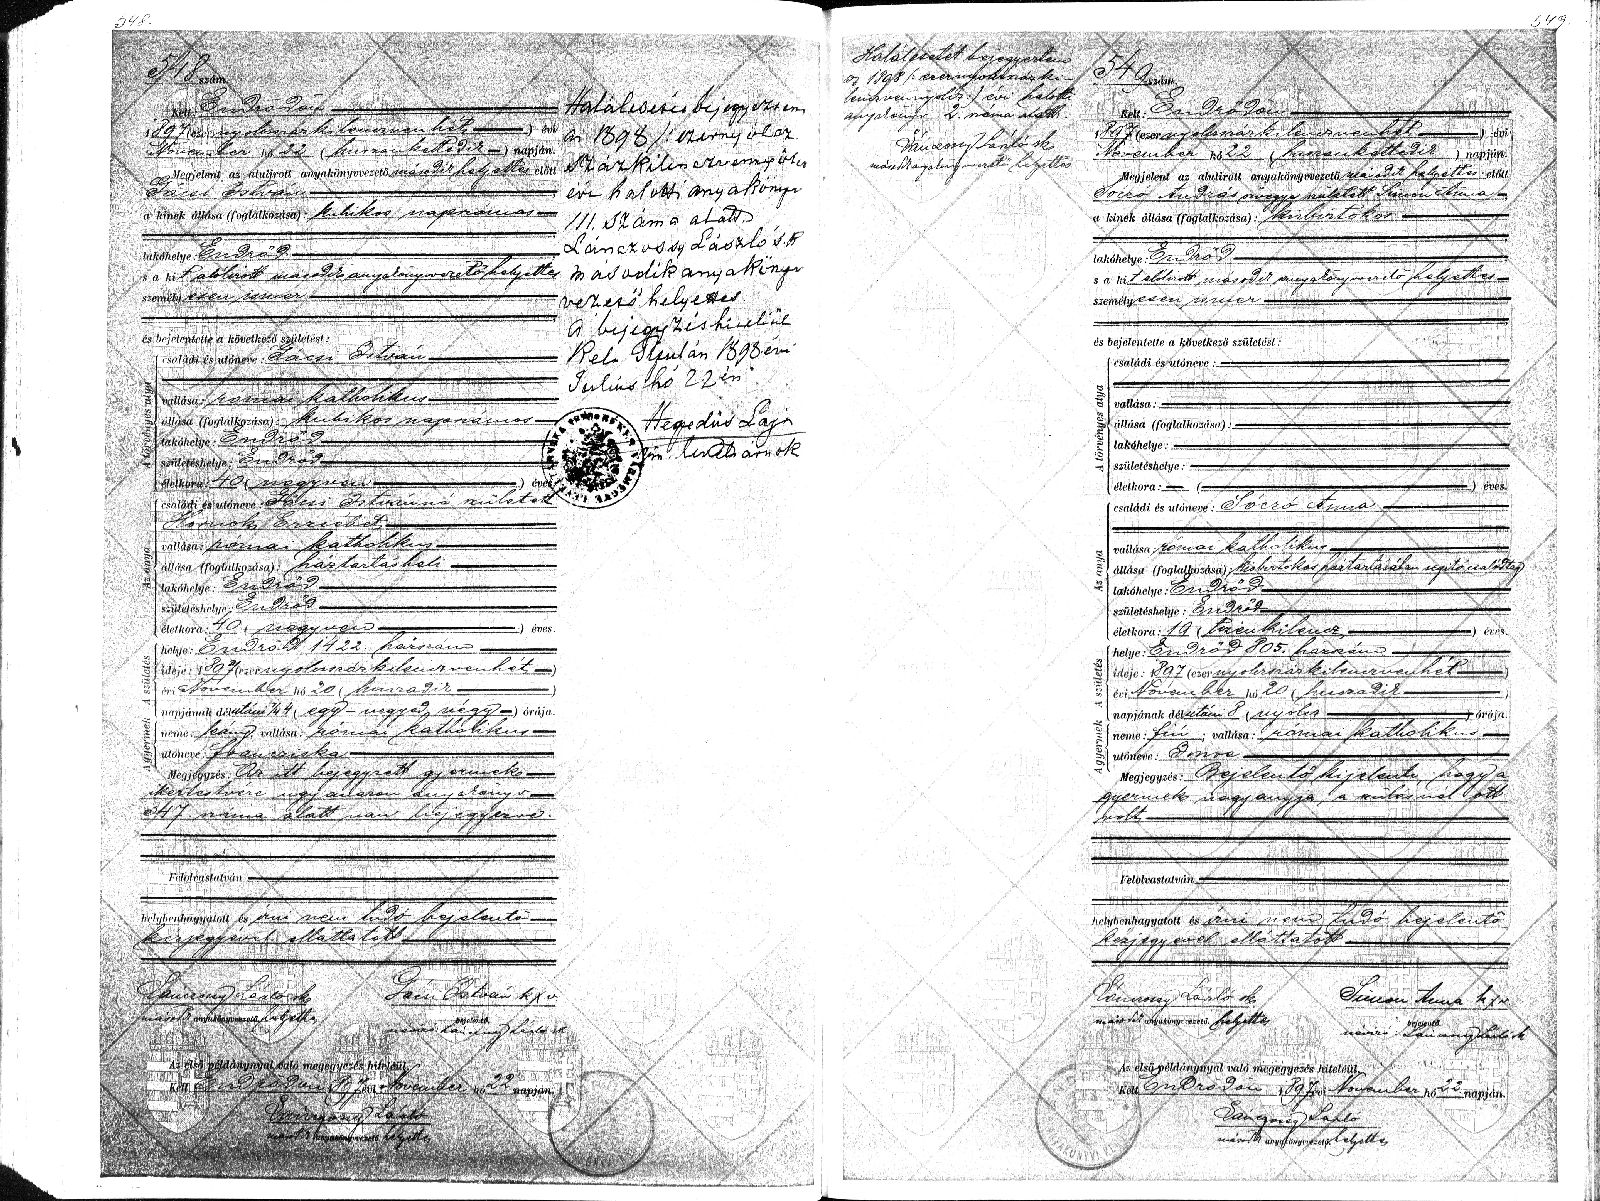 548.
548 szám.
Kelt Endrődön
1897 (ezernyolcszázkilenczvenhét) évi
November hó 22 (huszonkettedik) napján.
Megjelent az alulírott anyakönyvezető második helyettes előtt
István
a kinek állása (foglalkozása): kubikos napszámos
lakóhelye Endrőd
s a kit alulírott második anyakönyvvezető helyettes
személyesen ismer
és bejelentette a következő születést:
A törvényes atya
családi és utóneve: István
vallása: római katholikus
állása (foglalkozása): kubikos napszámos
lakóhelye: Endrőd
születéshelye: Endrőd
életkora: 40 (negyven) éves
Az anya
családi és utóneve: Istvánné született
Erzsébet
vallása: római katholikus
állása (foglalkozása): háztartásbeli
lakóhelye: Endrőd
születéshelye: Endrőd
életkora: 40 (negyven) éves.
A születés
helye: Endrőd 1422 házszám
ideje: 1897 (ezernyolcszázkilenczvenhét)
évi November hó 20 (huszadik)
napjának délutáni 1/44 (egy-negyed négy) órája.
A gyermek
neme: leány, vallása: római katholikus
utóneve: Franciska
Megjegyzés: Az itt bejegyzett gyermek
ikertestvére ugyanazon anyakönyv
547 száma alatt van bejegyezve.
Felolvastatván
helybenhagyatott és írni nem tudó bejelentő
kézjegyével elláttatott
László sk
másod anyakönyvvezető helyettes
István k x v
bejelentő
László sk
Az első példánynyal való megegyezés hiteléül
Kelt Endrődön 1897 évi November hó 22 napján.
László
másod anyakönyvvezető helyettes
Halálesetés bejegyezsem
az 1898 /: ezernyolcz
százkilenczvennyolcz
évi halotti anyakönyv
111. száma alatt
Lánczossy László s.k
második anyakönyv
vezető helyettes
A bejegyzés hiteléül
Kelt Gyulán 1898 évi
Julius hó 22 én
Hegedüs Lajo
levéltárnok
549.
Halálesetét bejegyeztem
az 1898
évi halotti
anyakönyv 2. száma alatt.
László sk
másodanyakönyvvezető helyettes
549 szám
Kelt Endrődön
1897 (ezernyolcszázkilenczvenhét) évi
November hó 22 (huszonkettedik) napján.
Megjelent az alulírott anyakönyvvezető második helyettes előtt
Soczó András özvegye született Simon Anna
a kinek állása (foglalkozása): kisbirtokos
lakóhelye: Endrőd
s a kit alulírott második anyakönyvvezető helyettes
személyesen ismer
és bejelentette a következő születést:
A törvényes atya
családi és utóneve:
vallása:
állása (foglalkozása):
lakóhelye:
születéshelye:
életkora: ( ) éves.
Az anya
családi és utóneve: Soczó Anna
vallása római katholikus
állása (foglalkozása): kisbirtokos háztartásában segítő családtag
lakóhelye: Endrőd
születéshelye: Endrőd
életkora: 19 (tizenkilencz) éves.
A születés
helye: Endrőd 805. házszám
ideje: 1897 (ezernyolcszázkilenczvenhét)
évi November hó 20 (huszadik)
napjának délutáni 8 (nyolcz) órája.
A gyermek
neme: fiú; vallása: római katholikus
utóneve: Imre
Megjegyzés: Bejelentő kijelenti, hogy a
gyermek nagyanyja, a szülésnél ott
volt
Felolvastatván
helybenhagyatott és írni nem tudó bejelentő
kézjegyével elláttatott
László sk
másod anyakönyvvezető helyettes
Simon Anna k x v
bejelentő
László sk
Az első példánynyal való megegyezés hiteléül.
Kelt Endrődön 1897 évi November hó 22 napján.
László
másod anyakönyvvezető helyettes